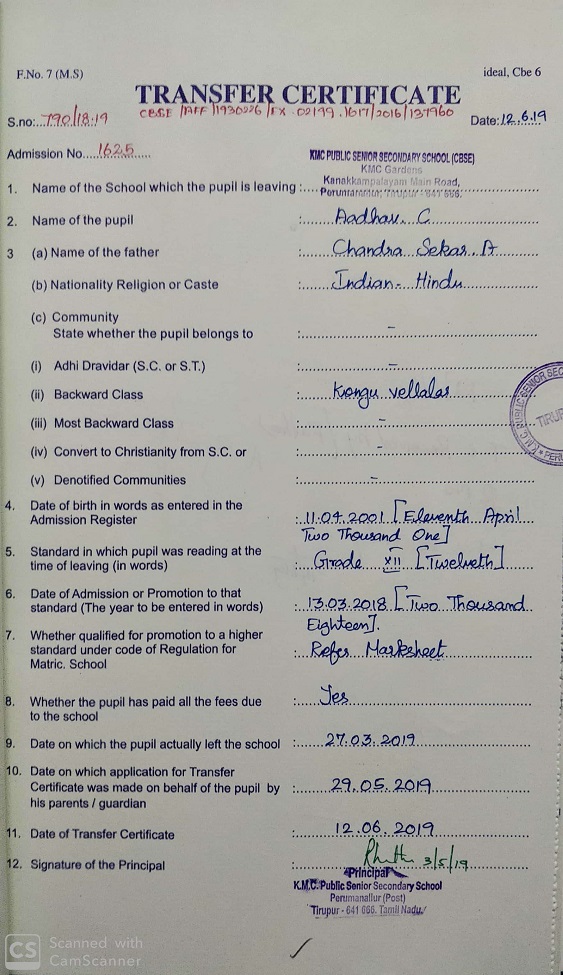 F.No. 7 (M.S)
ideal, Cbe 6
TRANSFER CERTIFICATE
CBSE /AFF /1930226 /EX .02199 .1617/2016/137960
S.no: 790/18-19
Date: 12.6.19
Admission No. 1625
KMC PUBLIC SENIOR SECONDARY SCHOOL (CBSE)
KMC Gardens
Kanakkampalayam Main Road,
1. Name of the School which the pupil is leaving : Perumanallur, Tirupur - 641 666.
2. Name of the pupil : Aadhav. C
3 (a) Name of the father : Chandra Sekar. A
(b) Nationality Religion or Caste : Indian - Hindu
(c) Community
State whether the pupil belongs to : -
(i) Adhi Dravidar (S.C. or S.T.) : -
(ii) Backward Class : Kongu vellalar
(iii) Most Backward Class : -
(iv) Convert to Christianity from S.C. or : -
(v) Denotified Communities : -
4. Date of birth in words as entered in the
Admission Register : 11.04.2001 [Eleventh April
Two Thousand One]
5. Standard in which pupil was reading at the
time of leaving (in words) : Grade XII [Twelveth]
6. Date of Admission or Promotion to that
standard (The year to be entered in words) : 13.03.2018 [Two Thousand
Eighteen].
7. Whether qualified for promotion to a higher
standard under code of Regulation for : Refer Marksheet
Matric. School
8. Whether the pupil has paid all the fees due : Yes
to the school
9. Date on which the pupil actually left the school : 27.03.2019
10. Date on which application for Transfer
Certificate was made on behalf of the pupil by : 29.05.2019
his parents / guardian
11. Date of Transfer Certificate : 12.06.2019
12. Signature of the Principal : 3/5/19
Principal
K.M.C. Public Senior Secondary School
Perumanallur (Post)
Tirupur - 641 666. Tamil Nadu.
K.M.C. PUBLIC SENIOR SEC
TIRUP
PERU
CS Scanned with
CamScanner